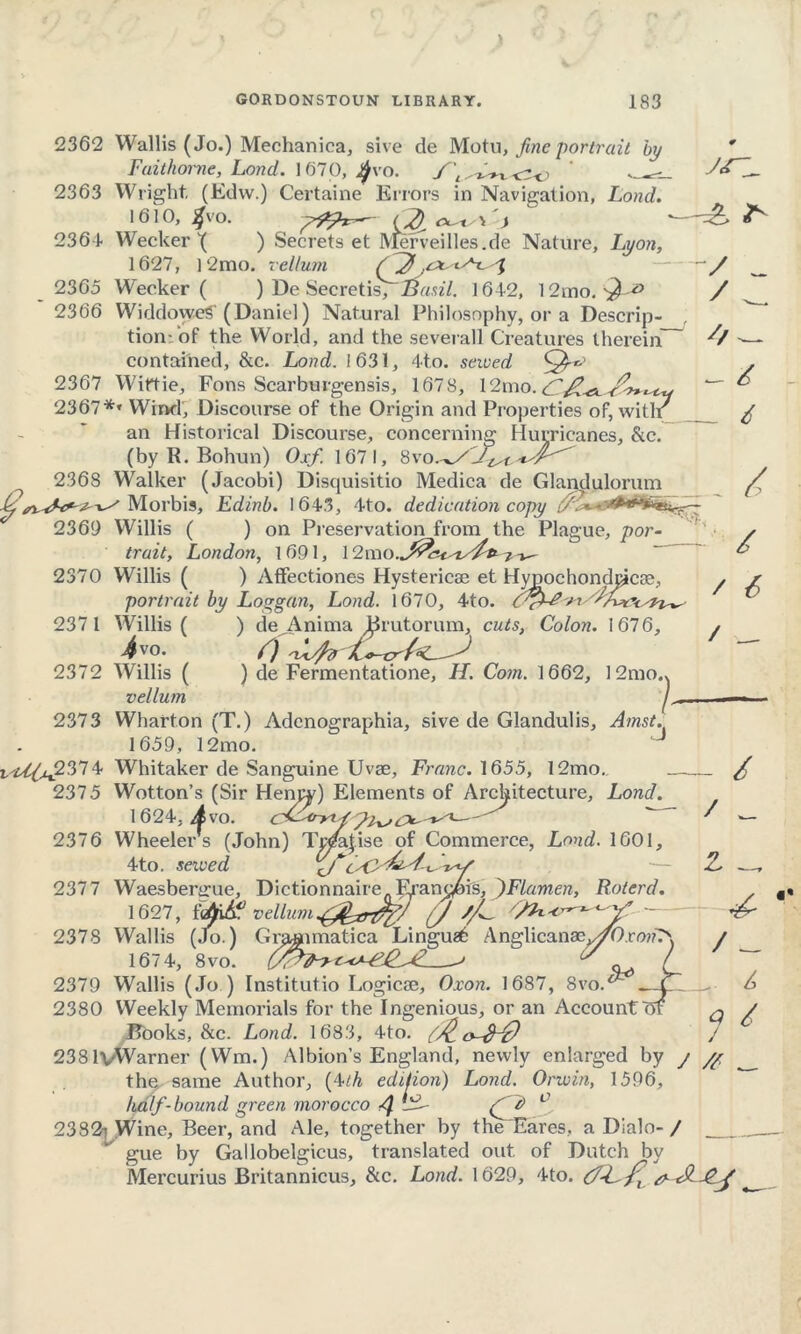 GORDONSTOUN LIBRARY. 183
2362 Wallis (Jo.) Mechanica, sive de Motu, fine portrait by
Faithorne, Lond. 1670, 4vo.
2363 Wright (Edw.) Certaine Errors in Navigation, Lond.
1610, 4vo.
2364 Wecker ( ) Secrets et Merveilles.de Nature, Lyon,
1627, 12mo. vellum
2365 Wecker ( ) De Secretis, Basil. 1642, 12mo.
2366 Widdowes (Daniel) Natural Philosophy, or a Descrip-
tion of the World, and the severall Creatures therein
contained, &c. Lond. 1631, 4to. sewed
2367 Wittie, Fons Scarburgensis, 1678, 12mo.
2367* Wind, Discourse of the Origin and Properties of, with
an Historical Discourse, concerning Hurricanes, &c.
(by R. Bohun) Oxf. 1671, 8vo.
2368 Walker (Jacobi) Disquisitio Medica de Glandulorum
Morbis, Edinb. 1643, 4to. dedication copy
2369 Willis ( ) on Preservation from the Plague, por-
trait, London, 1691, 12mo.
2370 Willis ( ) Affectiones Hystericæ et Hypochondricæ,
portrait by Loggan, Lond. 1670, 4to.
2371 Willis ( ) de Anima Brutorum, cuts, Colon. 1676,
4vo.
2372 Willis ( ) de Fermentatione, H. Com. 1662, 12mo.
vellum
2373 Wharton (T.) Adenographia, sive de Glandulis, Amst.
1659, 12mo.
2374 Whitaker de Sanguine Uvæ, Franc. 1655, 12mo.
2375 Wotton's (Sir Henry) Elements of Architecture, Lond.
1624, 4vo.
2376 Wheeler's (John) Treatise of Commerce, Lond. 1601,
4to. sewed
2377 Waesbergue, Dictionnaire François, Flamen, Roterd.
1627, vellum
2378 Wallis (Jo.) Grammatica Linguæ Anglicanæ, Oxon.
1674, 8vo.
2379 Wallis (Jo.) Institutio Logicæ, Oxon. 1687, 8vo.
2380 Weekly Memorials for the Ingenious, or an Account of
Books, &c. Lond. 1683, 4to.
2381 Warner (Wm.) Albion's England, newly enlarged by
the same Author, (4th edition) Lond. Orwin, 1596,
half-bound green morocco
2382 Wine, Beer, and Ale, together by the Eares, a Dialo-
gue by Gallobelgicus, translated out of Dutch by
Mercurius Britannicus, &c. Lond. 1629, 4to.